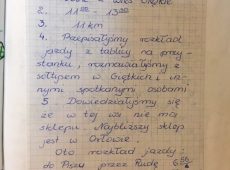 2. 11⁰⁰ - 13⁰⁰
3. 11 km
4. Przepisałyśmy rozkład
jazdy z tablicy na przy-
stanku, rozmawiałyśmy z
sołtysem w Giętkich i in-
nymi spotkanymi osobami
5. Dowiedziałyśmy się
że w tej wsi nie ma
sklepu. Najbliższy sklep
jest w Orłowie.
Oto rozkład jazdy:
do Pisza przez Rudę 6